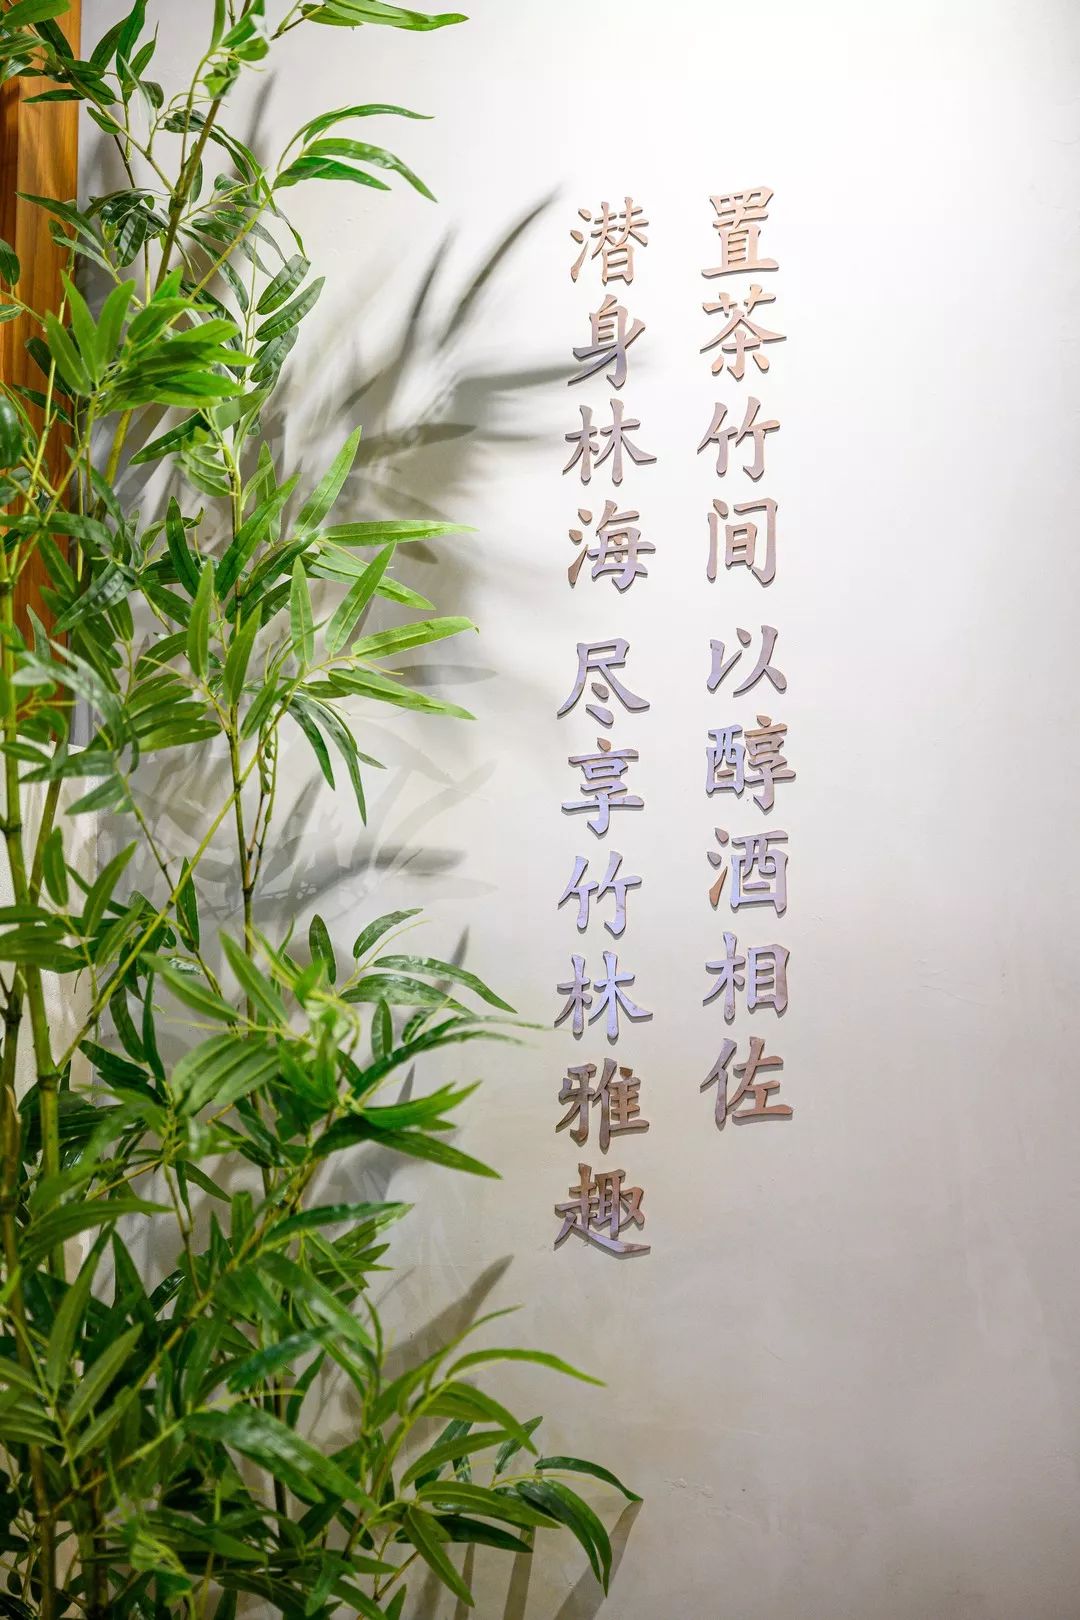 置茶竹间 以醇酒相佐
潜身林海 尽享竹林雅趣